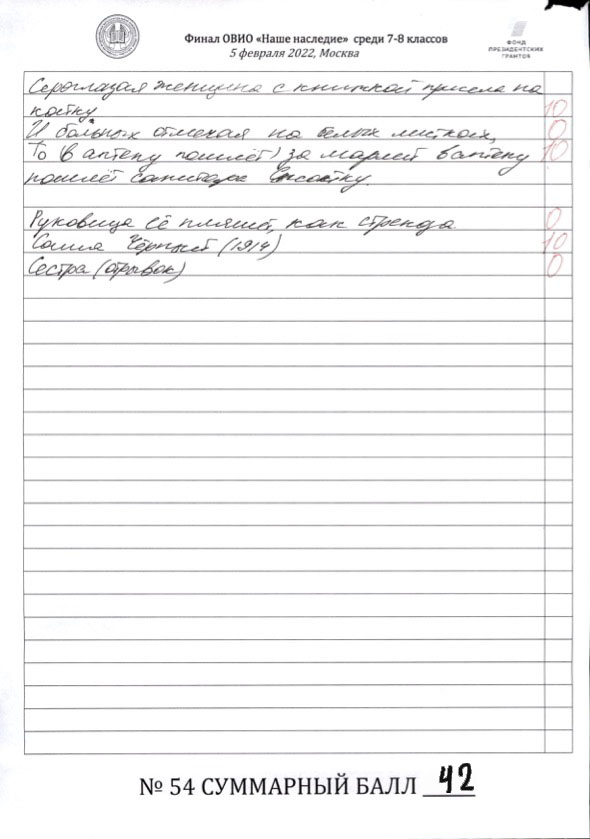 Финал ОВИО «Наше наследие» среди 7-8 классов
5 февраля 2022, Москва
ФОНД
ПРЕЗИДЕНТСКИХ
ГРАНТОВ
Сероглазая женщина с книжкой присела на
койку 10
И больных отмечая на белых листках, 0
То (в аптеку пошлёт) за марлей в аптеку 10
пошлёт санитара
Руковица её пляшет, как стрела 0
Саша Чёрный (1914) 10
Сестра (отрывок) 0
№ 54 СУММАРНЫЙ БАЛЛ 42